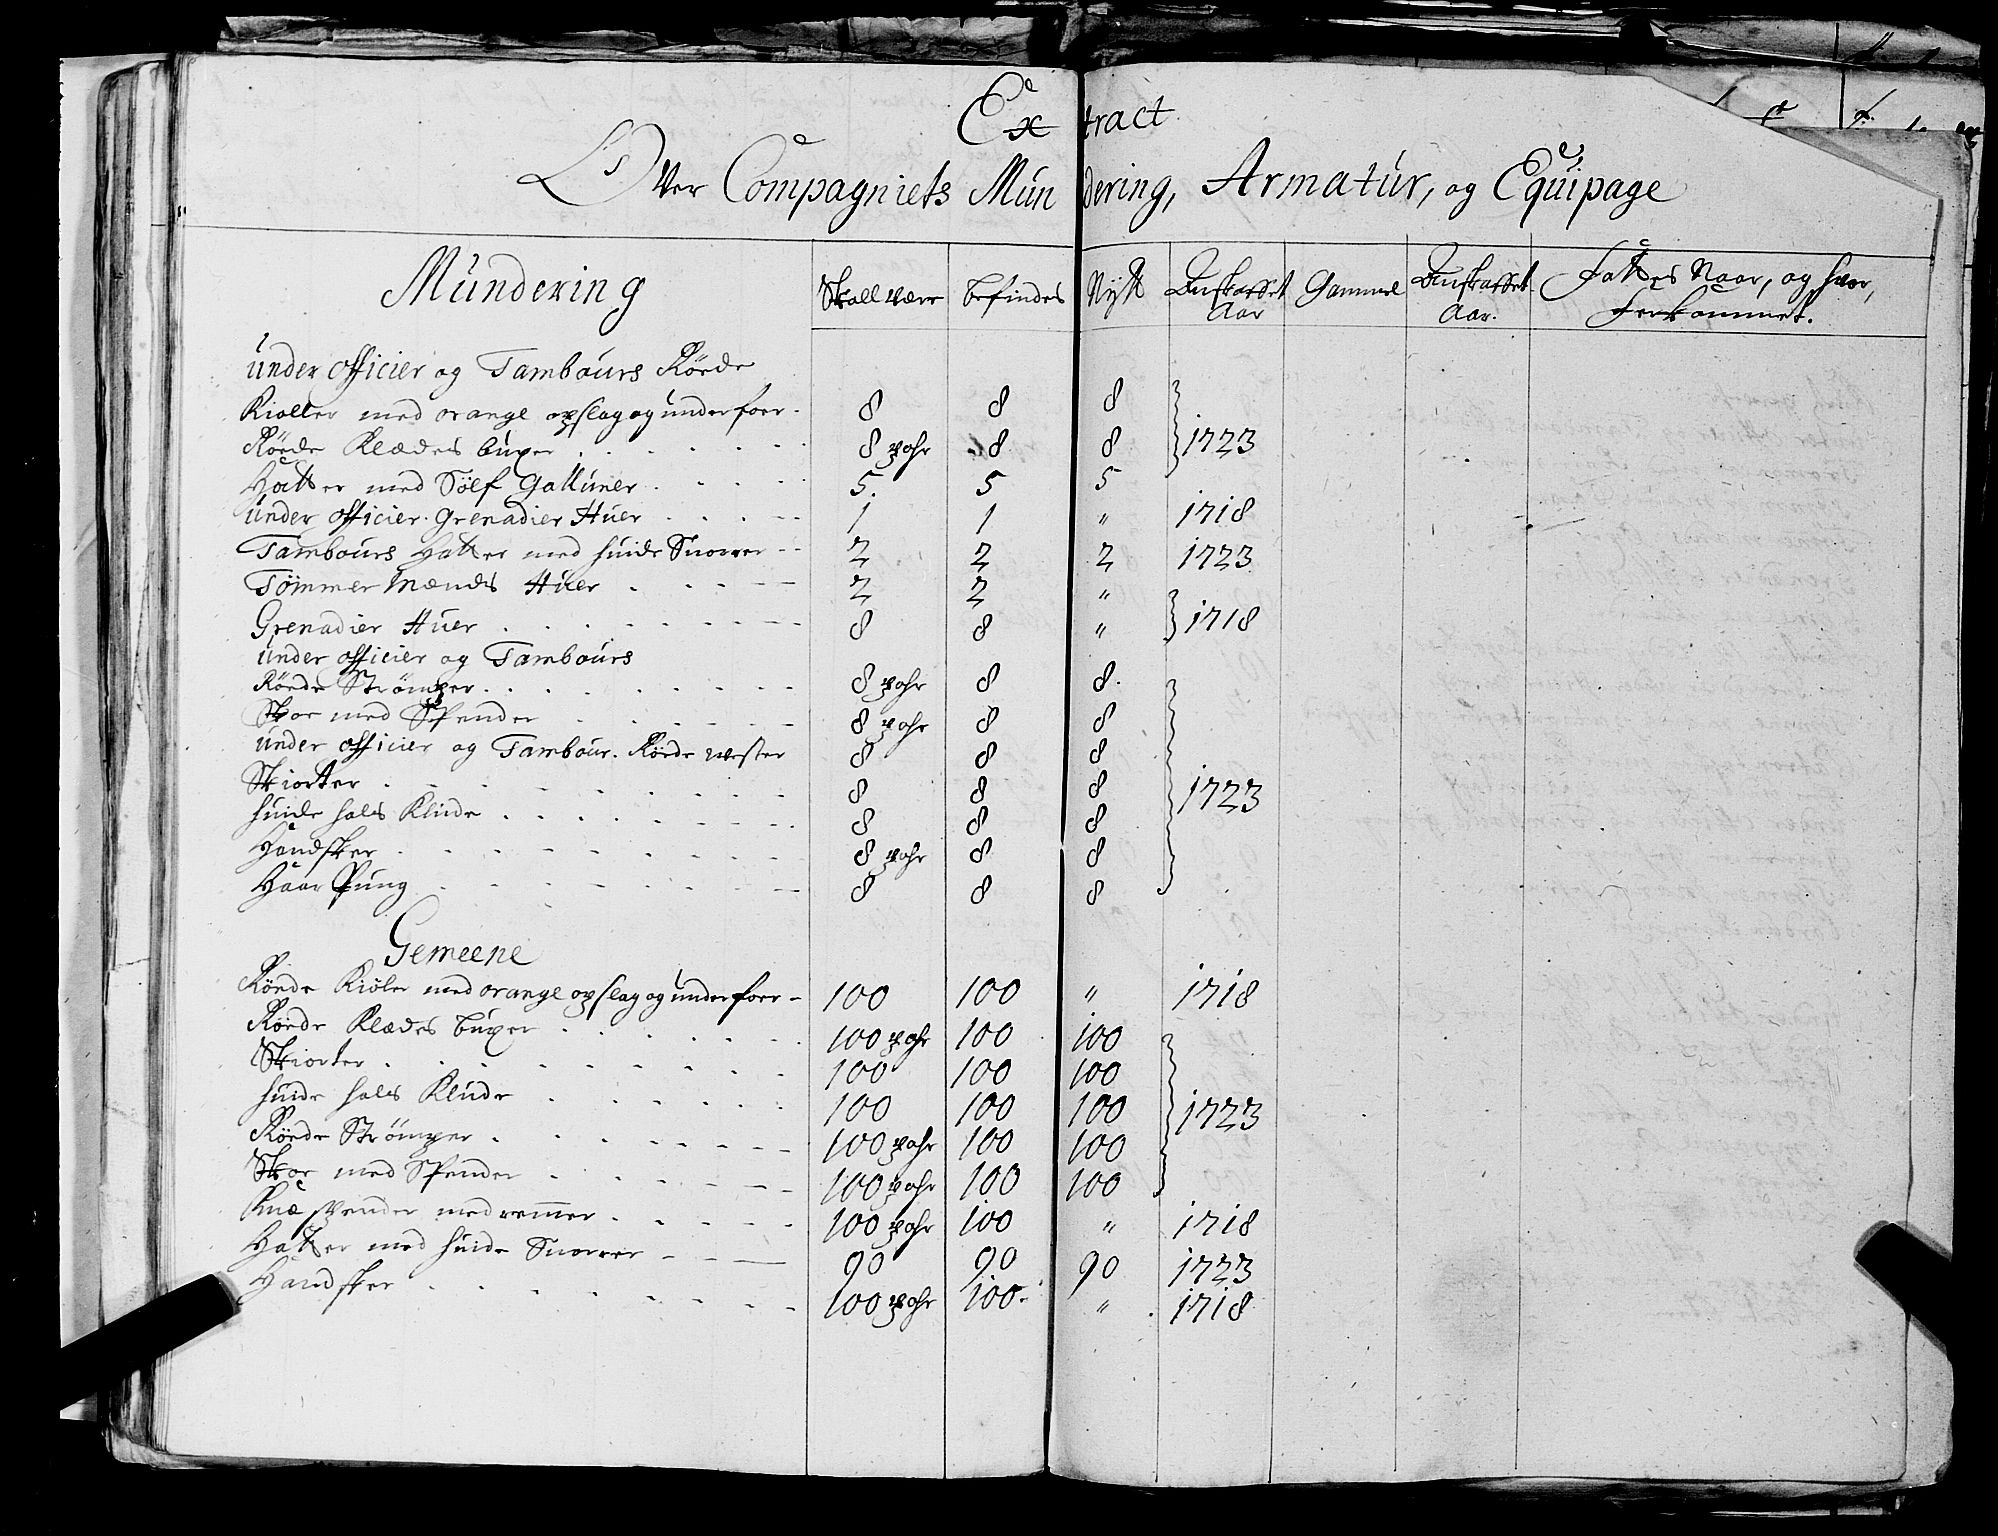 Extract
Over Compagniets Mundering, Armatur, og Equipage
Mundering Skall være befindes Nytt Anskaffet Aar Gammel Anskaffet Aar. Fattes Naar, og hvor, forkommet.
under officier og Tambours Röede
Kiolter med orange opslag og underfoer. 8 8 8
Röede Klædes buxer 8 pahr 8 8 1723
Hatter med Sölf Galluner 5. 5 5
Under officier Grenadier Huer 1 1 " 1718
Tambours Hatter med huide Snorrer 2 2 2 1723
Tömmer Mænds Huer 2 2 "
Grenadier Huer 8 8 " 1718
under officier og Tambours
Röede Strömper 8 pahr 8 8.
Skoe med Spender 8 pahr 8 8
under officier og Tambour. Röede wester 8 8 8
Skiorter 8 8 8 1723
huide hals Klude 8 8 8
Handsker 8 pahr 8 8
Haar Pung 8 8 8
Gemeene
Röede Kioler med orange opslag og underfoer 100 100 " 1718
Röede Klædes buxer 100 pahr 100 100
Skiorter 100 100 100
huide hals Klude 100 100 100 1723
Röede Strömper 100 pahr 100 100
Skoe med Spender 100 pahr 100 100
Knæ spender med remmer 100 pahr 100 " 1718
Hatter med huide Snorrer 90 90 90 1723
Handsker 100 pahr 100 " 1718